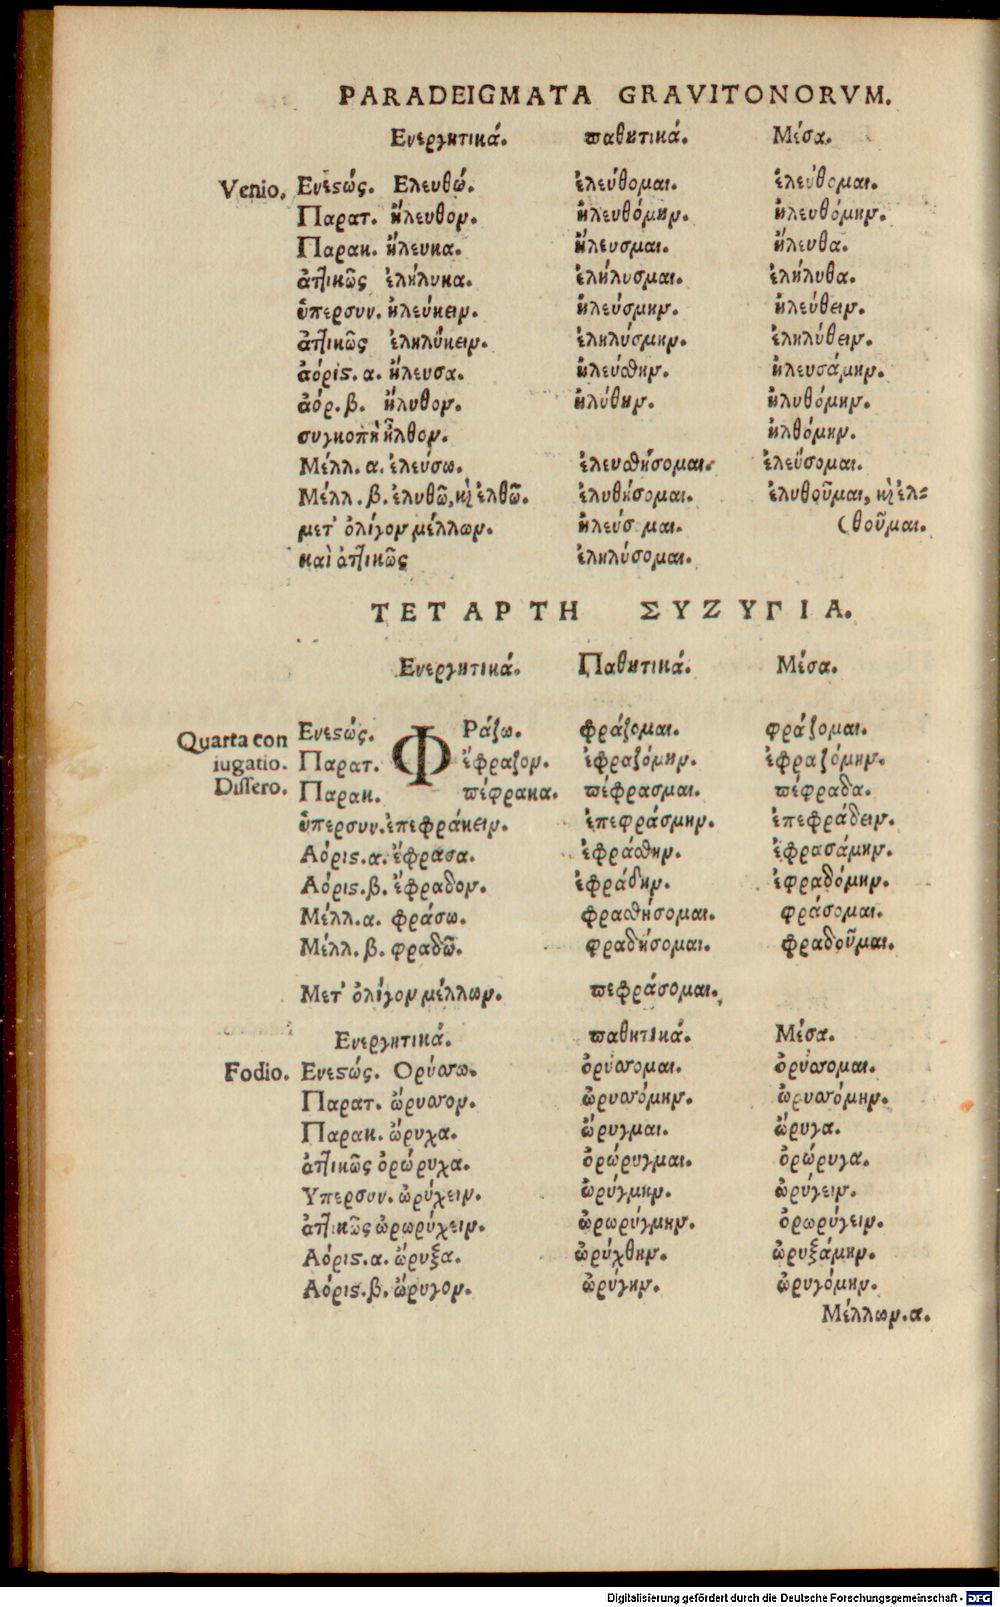 PARADEIGMATA GRAVITONORVM.
Ενεργητικά. παθητικά. Μέσα.
Venio. Ενεϛώς. Ελευθώ. ἐλεύθομαι. ἐλεύθομαι.
Παρατ. ἤλευθον. ἠλευθόμην. ἠλευθόμην.
Παρακ. ἤλευκα. ἤλευσμαι. ἤλευθα.
ἀττικῶς ἐλήλυκα. ἐλήλυσμαι. ἐλήλυθα.
ὑπερσυν. ἠλεύκειν. ἠλεύσμην. ἠλεύθειν.
ἀττικῶς ἐληλύκειν. ἐληλύσμην. ἐληλύθειν.
ἀόριϛ. α. ἤλευσα. ἠλεύσθην. ἠλευσάμην.
ἀόρ. β. ἤλυθον. ἠλύθην. ἠλυθόμην.
συγκοπῇ ἦλθον. ἠλθόμην.
Μέλλ. α. ἐλεύσω. ἐλευσθήσομαι. ἐλεύσομαι.
Μέλλ. β. ἐλυθῶ, κὶ ἐλθῶ. ἐλυθήσομαι. ἐλυθοῦμαι, κὶ ἐλ=
μετ' ὀλίγον μέλλων. ἠλεύσ μαι. (θοῦμαι.
καὶ ἀττικῶς ἐληλύσομαι.
ΤΕΤΑΡΤΗ ΣΥΖΥΓΙΑ.
Ενεργητικά. Παθητικά. Μέσα.
Quarta con Ενεϛώς. ΦΡάζω. φράζομαι. φράζομαι.
iugatio. Παρατ. ἔφραζον. ἐφραζόμην. ἐφραζόμην.
Dissero. Παρακ. πέφρακα. πέφρασμαι. πέφραδα.
ὑπερσυν. ἐπεφράκειν. ἐπεφράσμην. ἐπεφράδειν.
Αόριϛ. α. ἔφρασα. ἐφράσθην. ἐφρασάμην.
Αόριϛ. β. ἔφραδον. ἐφράδην. ἐφραδόμην.
Μέλλ. α. φράσω. φρασθήσομαι. φράσομαι.
Μέλλ. β. φραδῶ. φραδήσομαι. φραδοῦμαι.
Μετ' ὀλίγον μέλλων. πεφράσομαι.
Ενεργητικά. παθητικά. Μέσα.
Fodio. Ενεϛώς. Ορύσσω. ὀρύσσομαι. ὀρύσσομαι.
Παρατ. ὤρυσσον. ὠρυσσόμην. ὠρυσσόμην.
Παρακ. ὤρυχα. ὤρυγμαι. ὤρυγα.
ἀττικῶς ὀρώρυχα. ὀρώρυγμαι. ὀρώρυγα.
Υπερσυν. ὠρύχειν. ὠρύγμην. ὠρύγειν.
ἀττικῶς ὠρωρύχειν. ὠρωρύγμην. ὀρωρύγειν.
Αόριϛ. α. ὤρυξα. ὠρύχθην. ὠρυξάμην.
Αόριϛ. β. ὤρυγον. ὠρύγην. ὠρυγόμην.
Μέλλων. α.
Digitalisierung gefördert durch die Deutsche Forschungsgemeinschaft - DFG